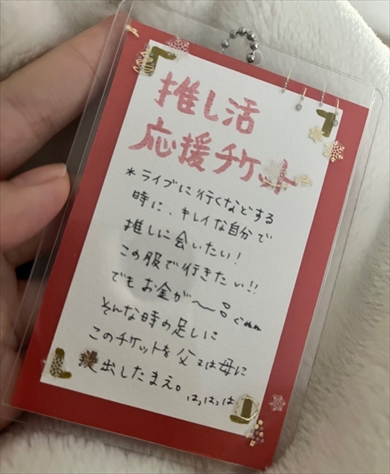 推し活
応援チケット
*ライブに行くなどする
時に、キレイな自分で
推しに会いたい!
この服で行きたい!!
でもお金が〜
そんな時の足しに
このチケットを父又は母に
提出したまえ。はっはっは